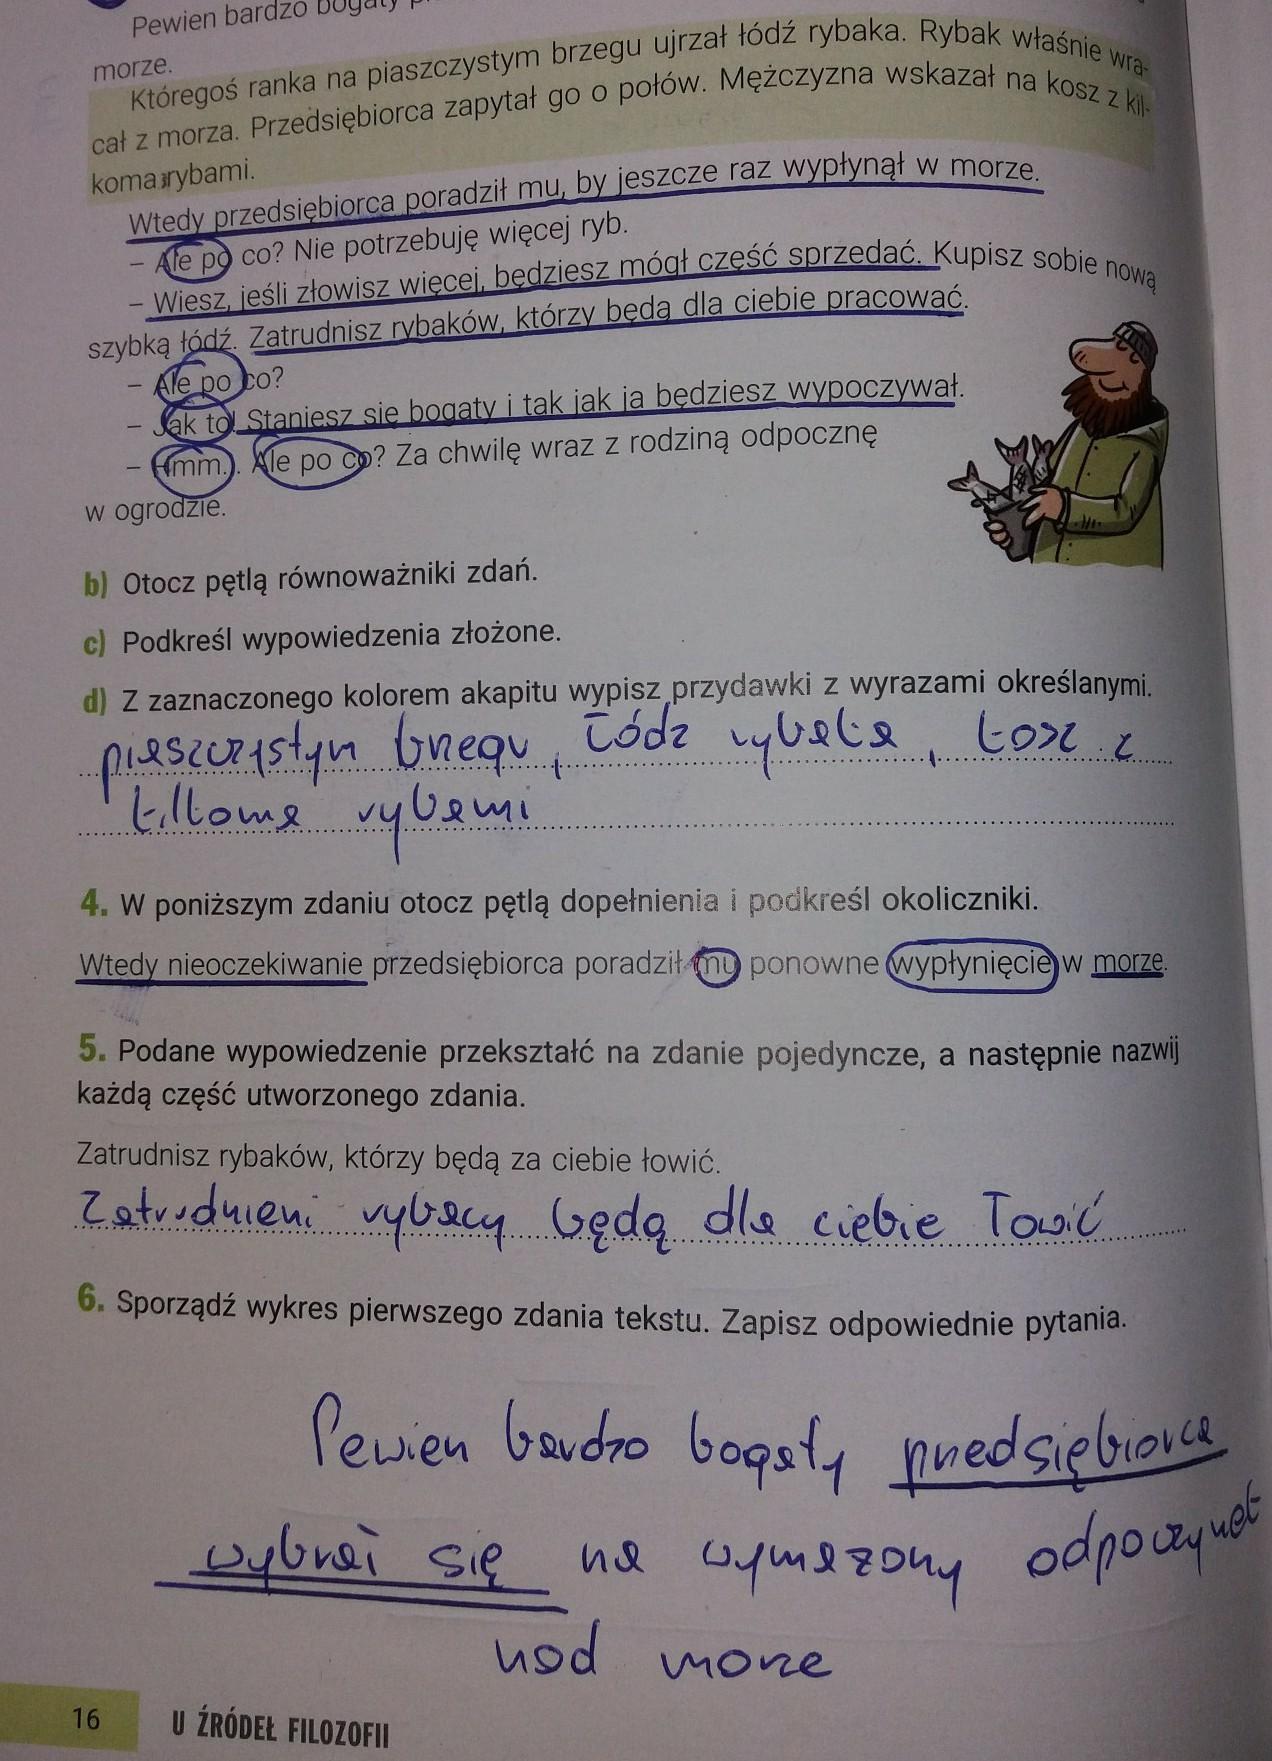 Pewien bardzo bogaty
morze.
Któregoś ranka na piaszczystym brzegu ujrzał łódź rybaka. Rybak właśnie wra-
cał z morza. Przedsiębiorca zapytał go o połów. Mężczyzna wskazał na kosz z kil-
koma rybami.
Wtedy przedsiębiorca poradził mu, by jeszcze raz wypłynął w morze.
– Ale po co? Nie potrzebuję więcej ryb.
– Wiesz, jeśli złowisz więcej, będziesz mógł część sprzedać. Kupisz sobie nową
szybką łódź. Zatrudnisz rybaków, którzy będą dla ciebie pracować.
– Ale po co?
– Jak to! Staniesz się bogaty i tak jak ja będziesz wypoczywał.
– Hmm... Ale po co? Za chwilę wraz z rodziną odpocznę
w ogrodzie.
b) Otocz pętlą równoważniki zdań.
c) Podkreśl wypowiedzenia złożone.
d) Z zaznaczonego kolorem akapitu wypisz przydawki z wyrazami określanymi.
piaszczystym brzegu, łódź rybaka, kosz z
kilkoma rybami
4. W poniższym zdaniu otocz pętlą dopełnienia i podkreśl okoliczniki.
Wtedy nieoczekiwanie przedsiębiorca poradził mu ponowne wypłynięcie w morze.
5. Podane wypowiedzenie przekształć na zdanie pojedyncze, a następnie nazwij
każdą część utworzonego zdania.
Zatrudnisz rybaków, którzy będą za ciebie łowić.
Zatrudnieni rybacy będą dla ciebie łowić
6. Sporządź wykres pierwszego zdania tekstu. Zapisz odpowiednie pytania.
Pewien bardzo bogaty przedsiębiorca
wybrał się na wymarzony odpoczynek
nad morze
16 U ŹRÓDEŁ FILOZOFII